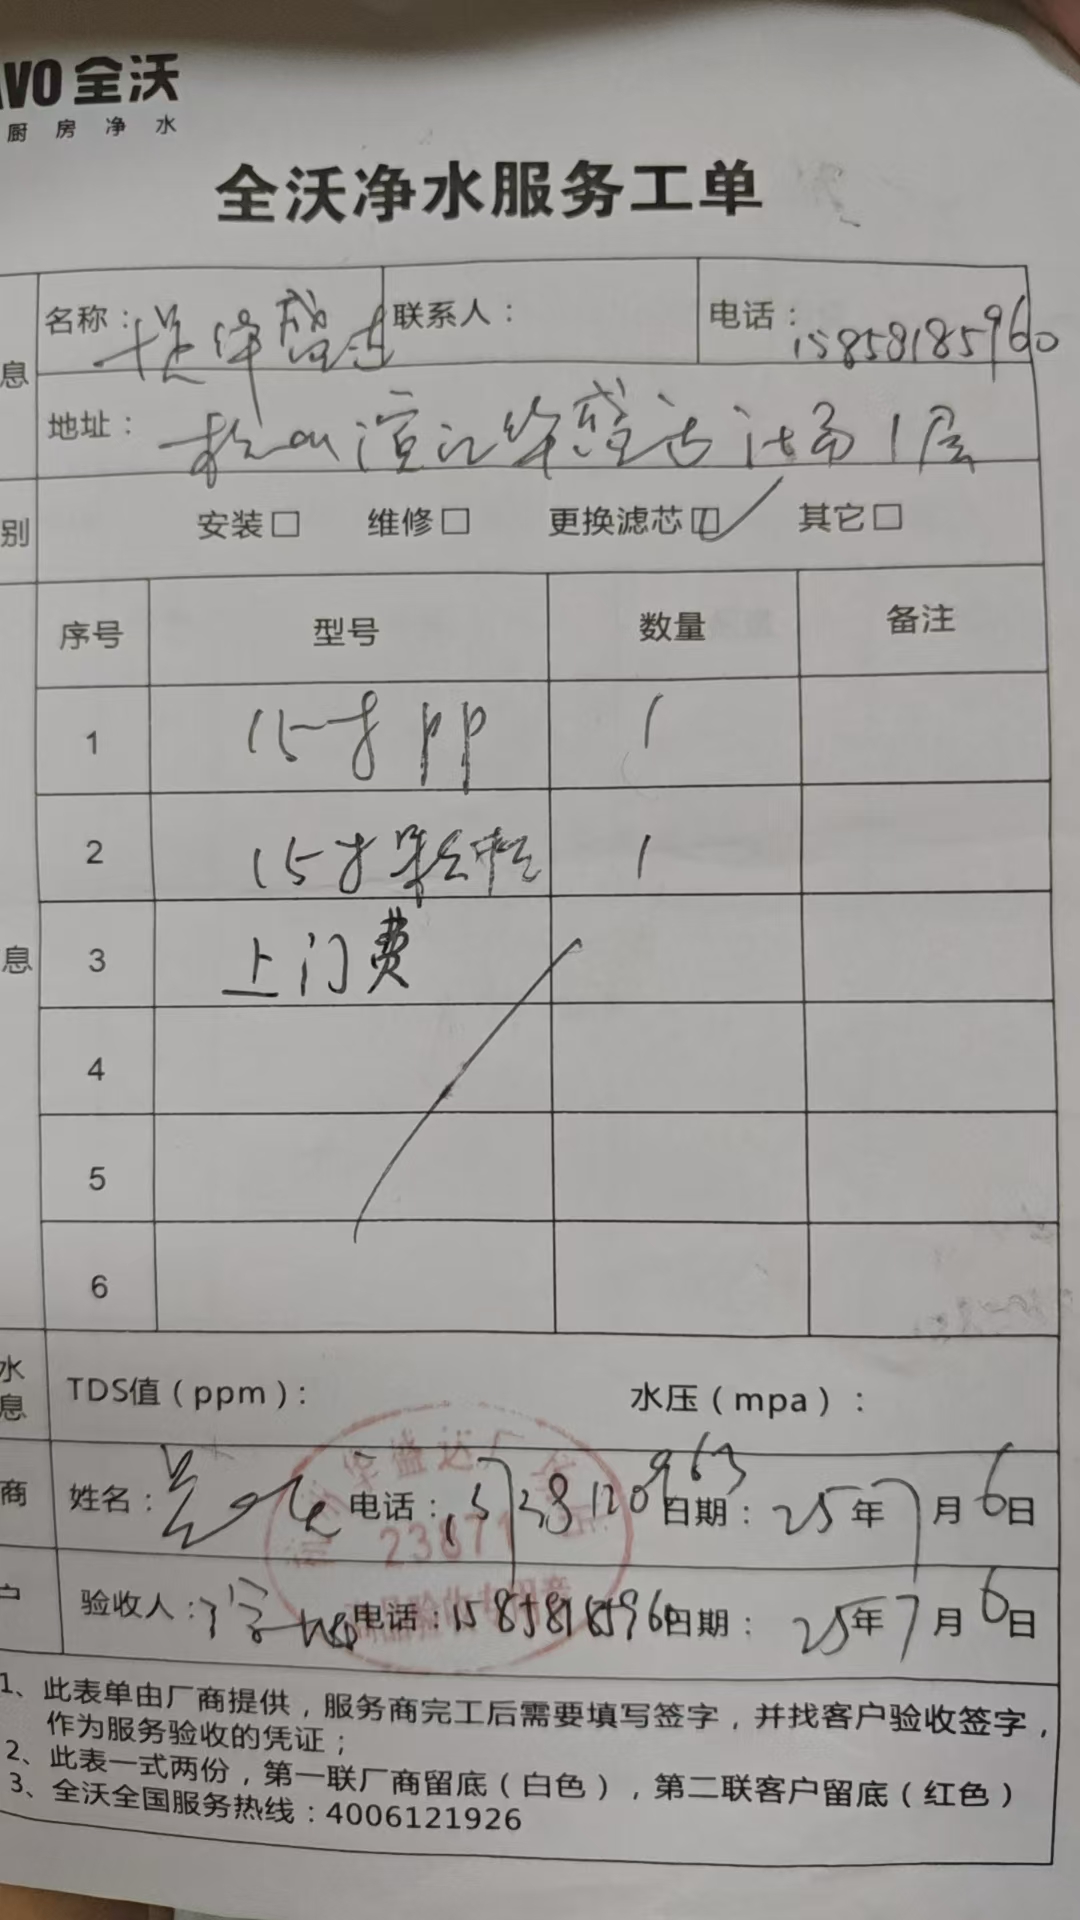 VO全沃
厨房净水
全沃净水服务工单
息
名称： 华盛达
联系人：
电话：15858185960
地址： 滨江华盛达 1层
别
安装□ 维修□ 更换滤芯□ 其它□
序号 型号 数量 备注
1 15寸PP 1
2 15寸 1
息
3 上门费
4
5
6
水
息
TDS值（ppm）： 水压（mpa）：
商
姓名： 电话： 日期：25年7月6日
户
验收人： 电话：15858185960 日期：25年7月6日
华盛达厂
23871
商品验收专用章
1、此表单由厂商提供，服务商完工后需要填写签字，并找客户验收签字，
作为服务验收的凭证；
2、此表一式两份，第一联厂商留底（白色），第二联客户留底（红色）
3、全沃全国服务热线：4006121926